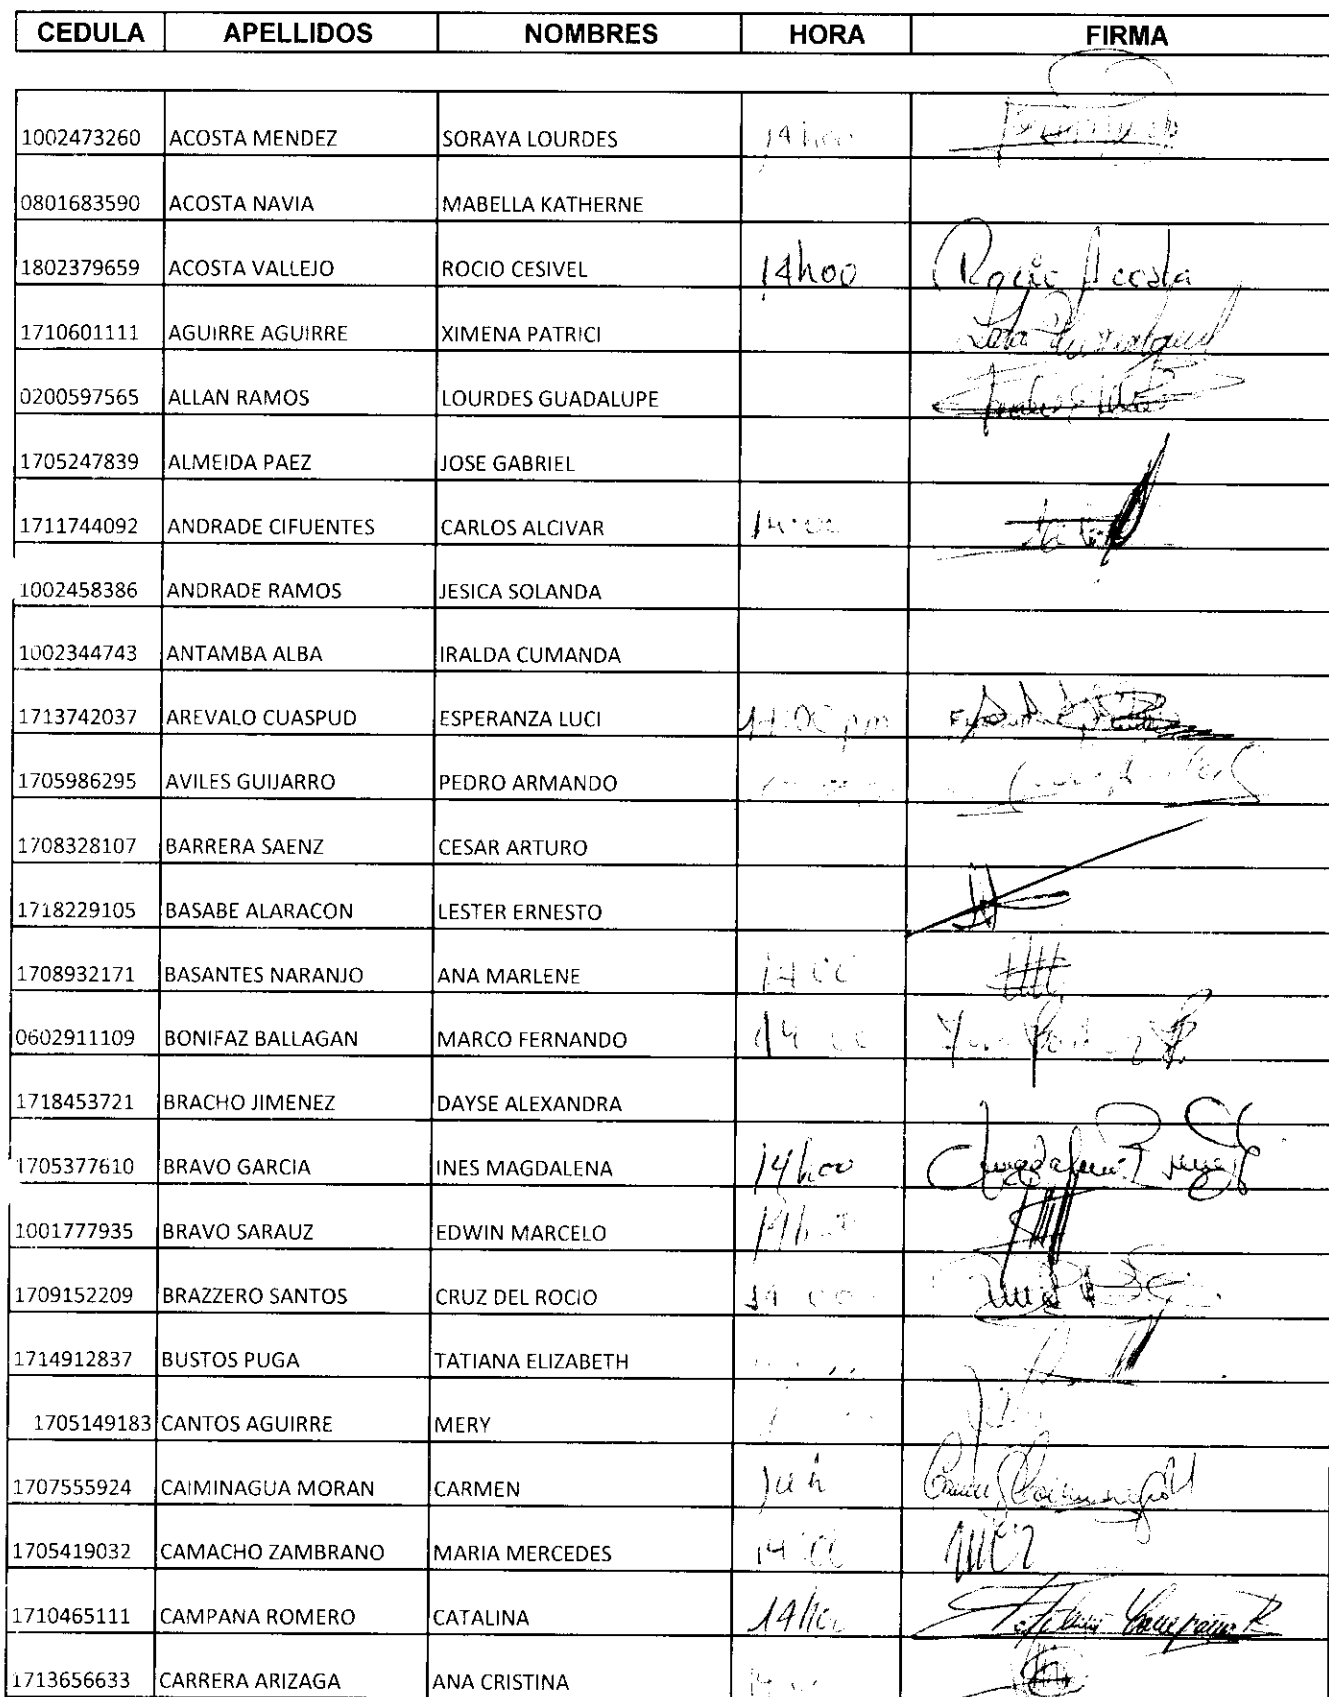 CEDULA APELLIDOS NOMBRES HORA FIRMA
1002473260 ACOSTA MENDEZ SORAYA LOURDES 14h00
0801683590 ACOSTA NAVIA MABELLA KATHERNE
1802379659 ACOSTA VALLEJO ROCIO CESIVEL 14h00 Rocio Acosta
1710601111 AGUIRRE AGUIRRE XIMENA PATRICI
0200597565 ALLAN RAMOS LOURDES GUADALUPE
1705247839 ALMEIDA PAEZ JOSE GABRIEL
1711744092 ANDRADE CIFUENTES CARLOS ALCIVAR 14:00
1002458386 ANDRADE RAMOS JESICA SOLANDA
1002344743 ANTAMBA ALBA IRALDA CUMANDA
1713742037 AREVALO CUASPUD ESPERANZA LUCI pm
1705986295 AVILES GUIJARRO PEDRO ARMANDO
1708328107 BARRERA SAENZ CESAR ARTURO
1718229105 BASABE ALARACON LESTER ERNESTO
1708932171 BASANTES NARANJO ANA MARLENE 14 00
0602911109 BONIFAZ BALLAGAN MARCO FERNANDO 14 00
1718453721 BRACHO JIMENEZ DAYSE ALEXANDRA
1705377610 BRAVO GARCIA INES MAGDALENA 14h00
1001777935 BRAVO SARAUZ EDWIN MARCELO 14h00
1709152209 BRAZZERO SANTOS CRUZ DEL ROCIO 14 00
1714912837 BUSTOS PUGA TATIANA ELIZABETH
1705149183 CANTOS AGUIRRE MERY
1707555924 CAIMINAGUA MORAN CARMEN 14h
1705419032 CAMACHO ZAMBRANO MARIA MERCEDES 14:00
1710465111 CAMPANA ROMERO CATALINA 14h00
1713656633 CARRERA ARIZAGA ANA CRISTINA